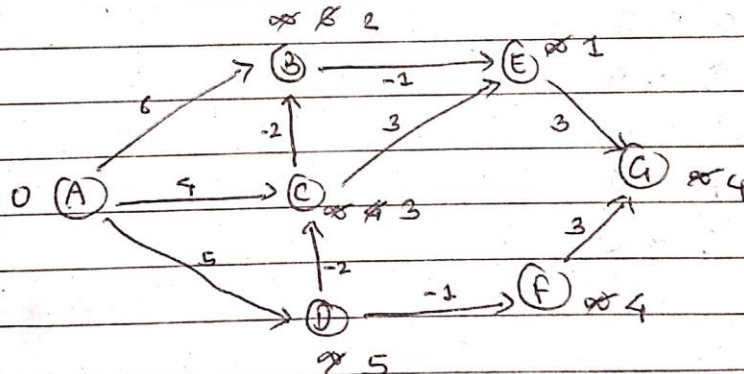 ∞ 6 2
B -1 E ∞ 1
6 -2 3 3
0 A 4 C ∞ 4 3 G ∞ 4
5 -2 3
D -1 F ∞ 4
∞ 5